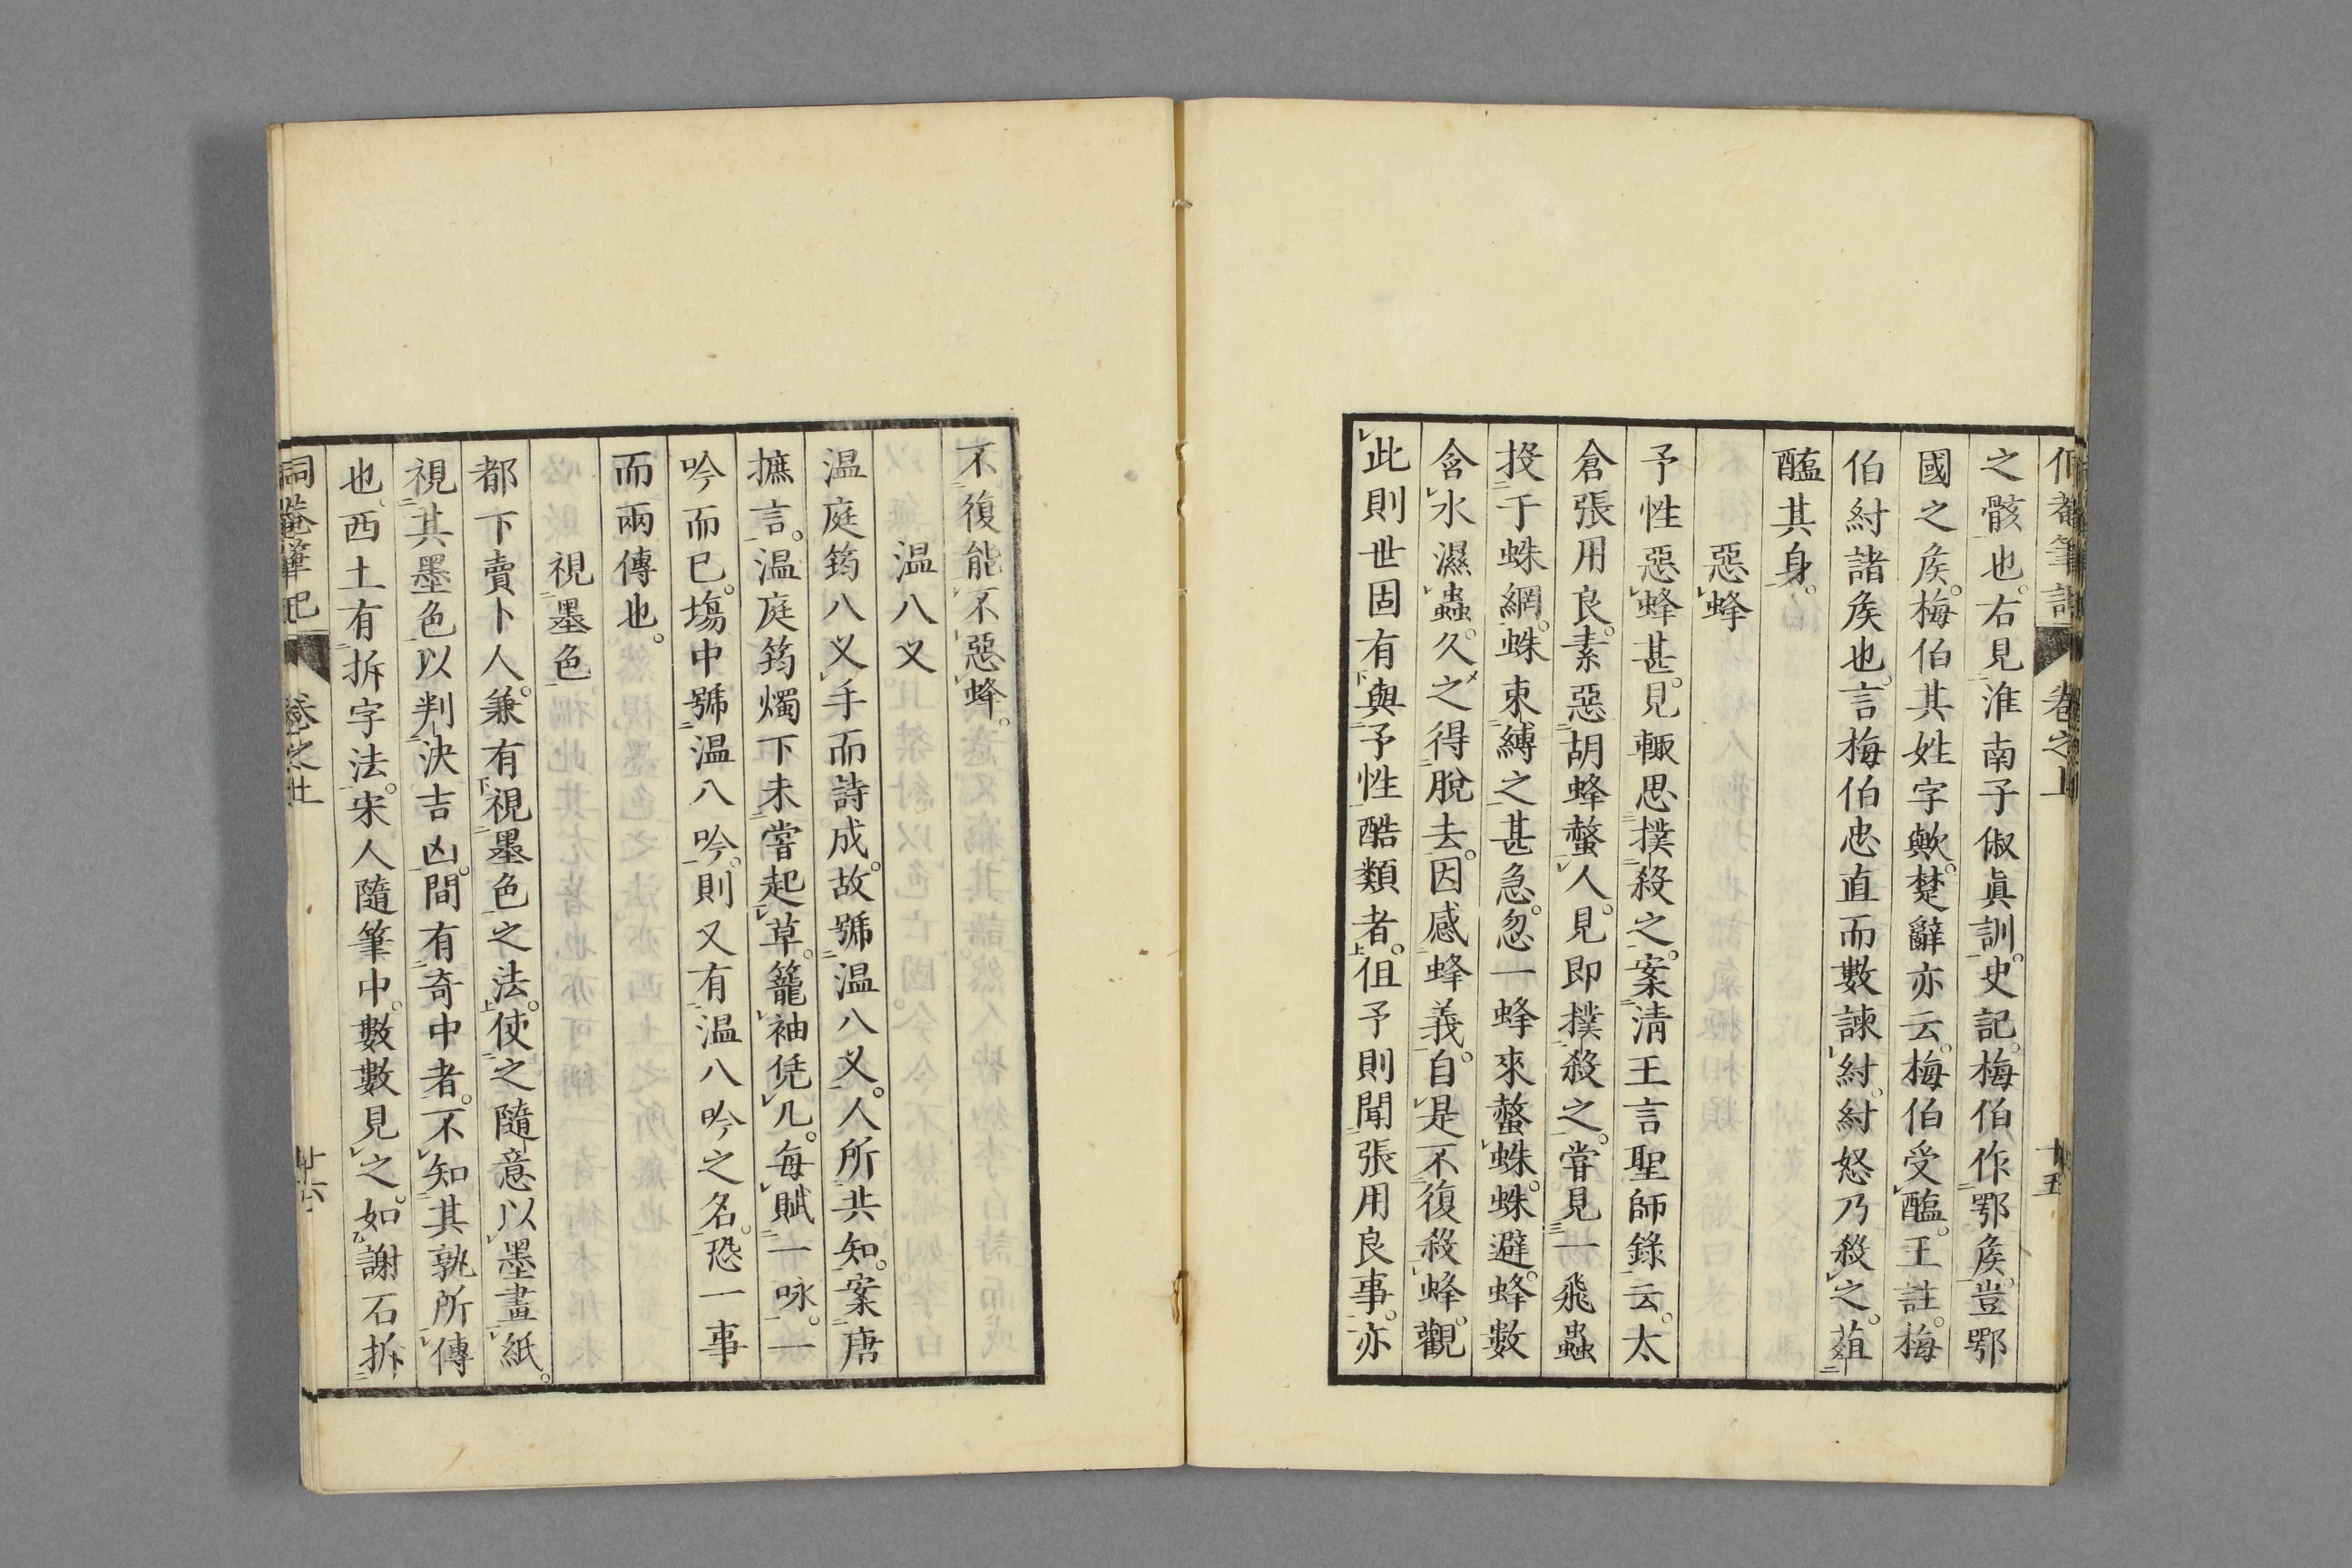 侗菴筆記 卷之上 十五
之骸也。右見淮南子俶眞訓。史記。梅伯作鄂矦。豈鄂
國之矦。梅伯其姓字歟。楚辭亦云。梅伯受醢。王註。梅
伯紂諸矦也。言梅伯忠直而數諫紂。紂怒乃殺之。葅
醢其身。
惡蜂
予性惡蜂甚。見輙思撲殺之。案清王言聖師錄云。太
倉張用良。素惡胡蜂螫人。見即撲殺之。甞見一飛蟲
投于蛛網。蛛束縛之甚急。忽一蜂來螫蛛。蛛避。蜂數
含水濕蟲。久之得脫去。因感蜂義。自是不復殺蜂。觀
此則世固有與予性酷類者。但予則聞張用良事。亦
不復能不惡蜂。
温八叉
温庭筠八叉手而詩成。故號温八叉。人所共知。案唐
摭言。温庭筠燭下未嘗起草。籠袖凭几。每賦一咏。一
吟而已。塲中號温八吟。則又有温八吟之名。恐一事
而兩傳也。
視墨色
都下賣卜人。兼有視墨色之法。使之隨意以墨畫紙。
視其墨色以判決吉凶。間有奇中者。不知其孰所傳
也。西土有拆字法。宋人隨筆中。數數見之。如謝石拆
侗菴筆記 卷之上 十六